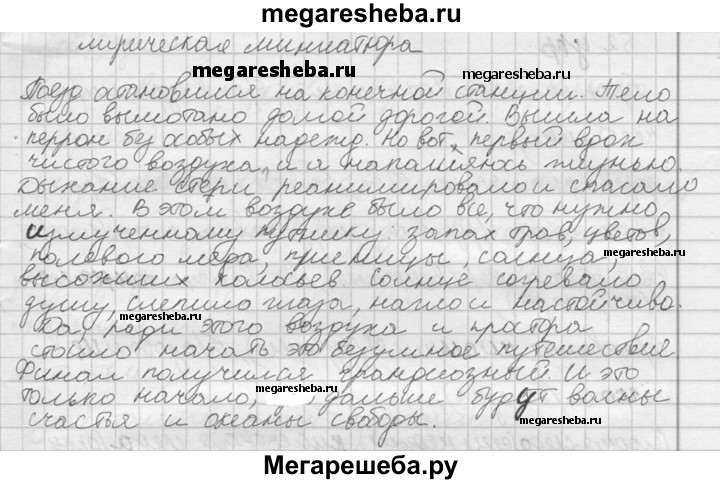 megaresheba.ru
лирическая миниатюра
megaresheba.ru
megaresheba.ru
Поезд остановился на конечной станции. Тело
было вымотано долгой дорогой. Вышла на
перрон без особых надежд. Но вот, первый вдох
megaresheba.ru
чистого воздуха, и я наполняюсь жизнью.
Дыхание степи реанимировало и спасало
меня. В этом воздухе было все, что нужно
измученному путнику: запах трав, цветов,
megaresheba.ru
полевого мёра, пшеницы, солнца,
megaresheba.ru
высохших колосьев. Солнце согревало
душу, слепило глаза, нагло и настойчиво.
megaresheba.ru
Да, ради этого воздуха и простора
стоило начать это безумное путешествие
megaresheba.ru
Финал получился грандиозный. И это
только начало, дальше будут волны
megaresheba.ru
счастья и океаны свободы.
Мегарешеба.ру